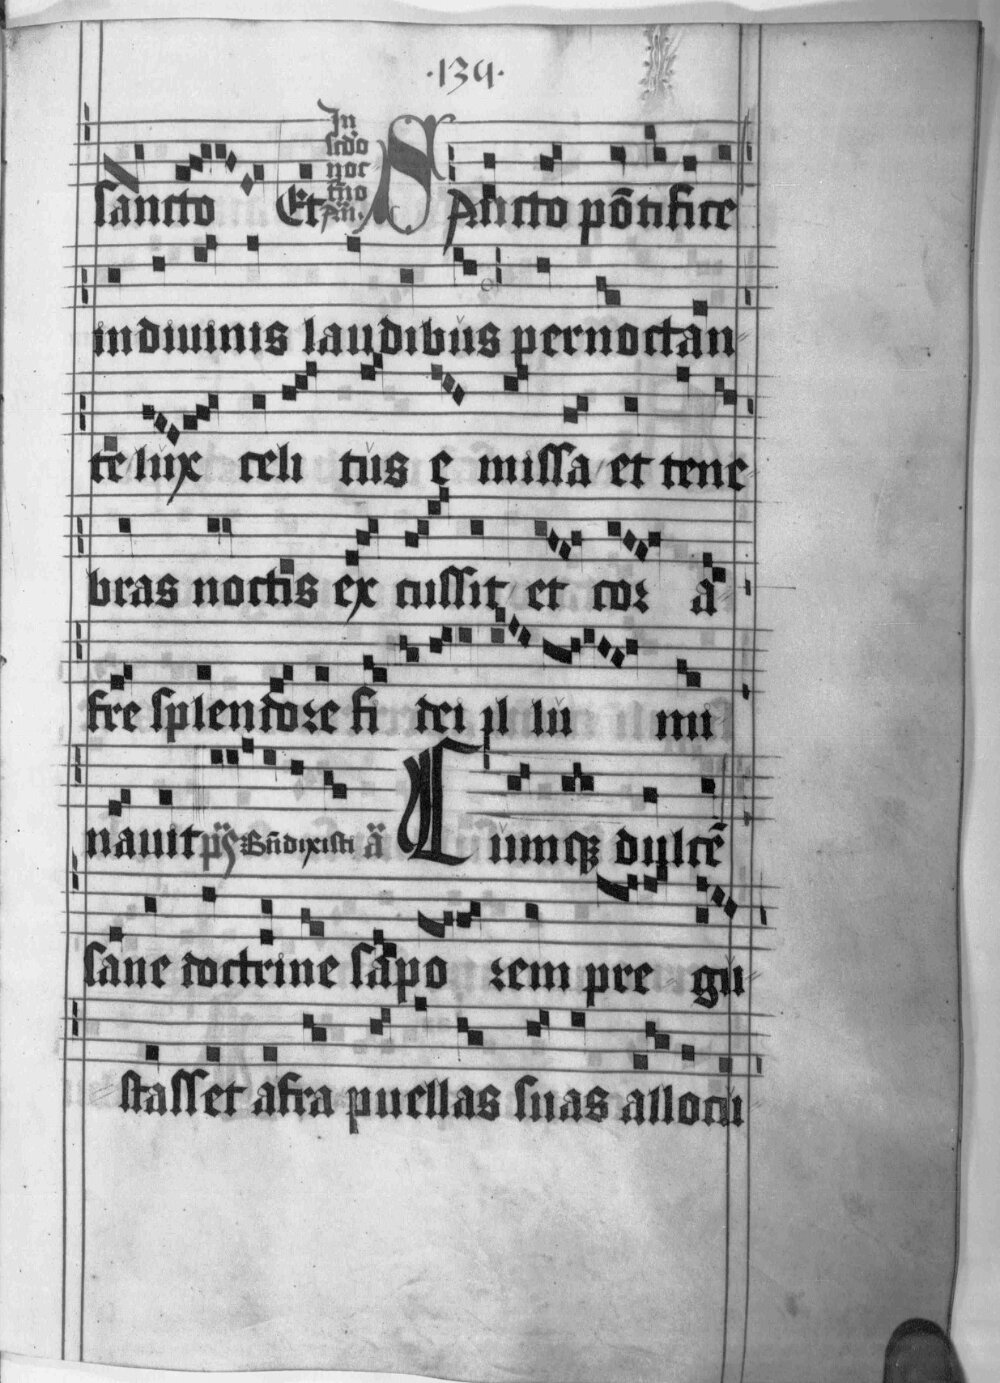 ·139·
sancto Et In scdo noctno An. SAncto põtifice
in diuinis laudibus pernoctan
te lux celi tus e missa et tene
bras noctis ex cussit et cor a
fre splendore fi dei il lu mi
nauit ps Bñdixisti ã Cumq dulcẽ
sane doctrine sapo rem pre gu
stasset afra puellas suas allocu